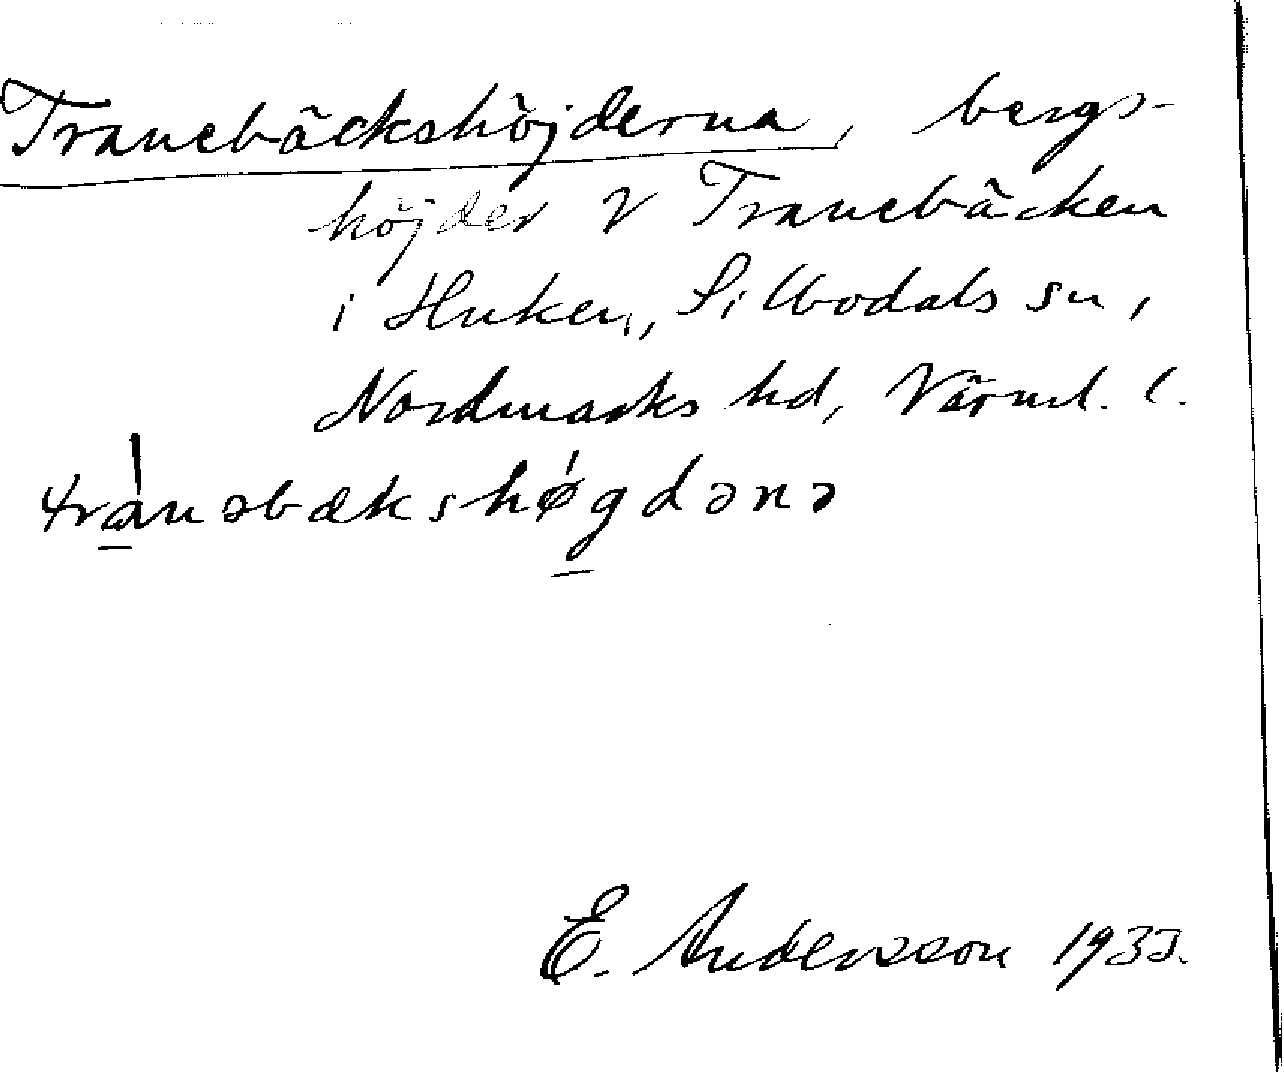 Tranebäckshöjderna, bergs-
höjder V Tranebäcken
i Huken, Sillbodals sn,
Nordmarks hd, Värml. l.
tranəbækshøgdənə
E. Andersson 1933.